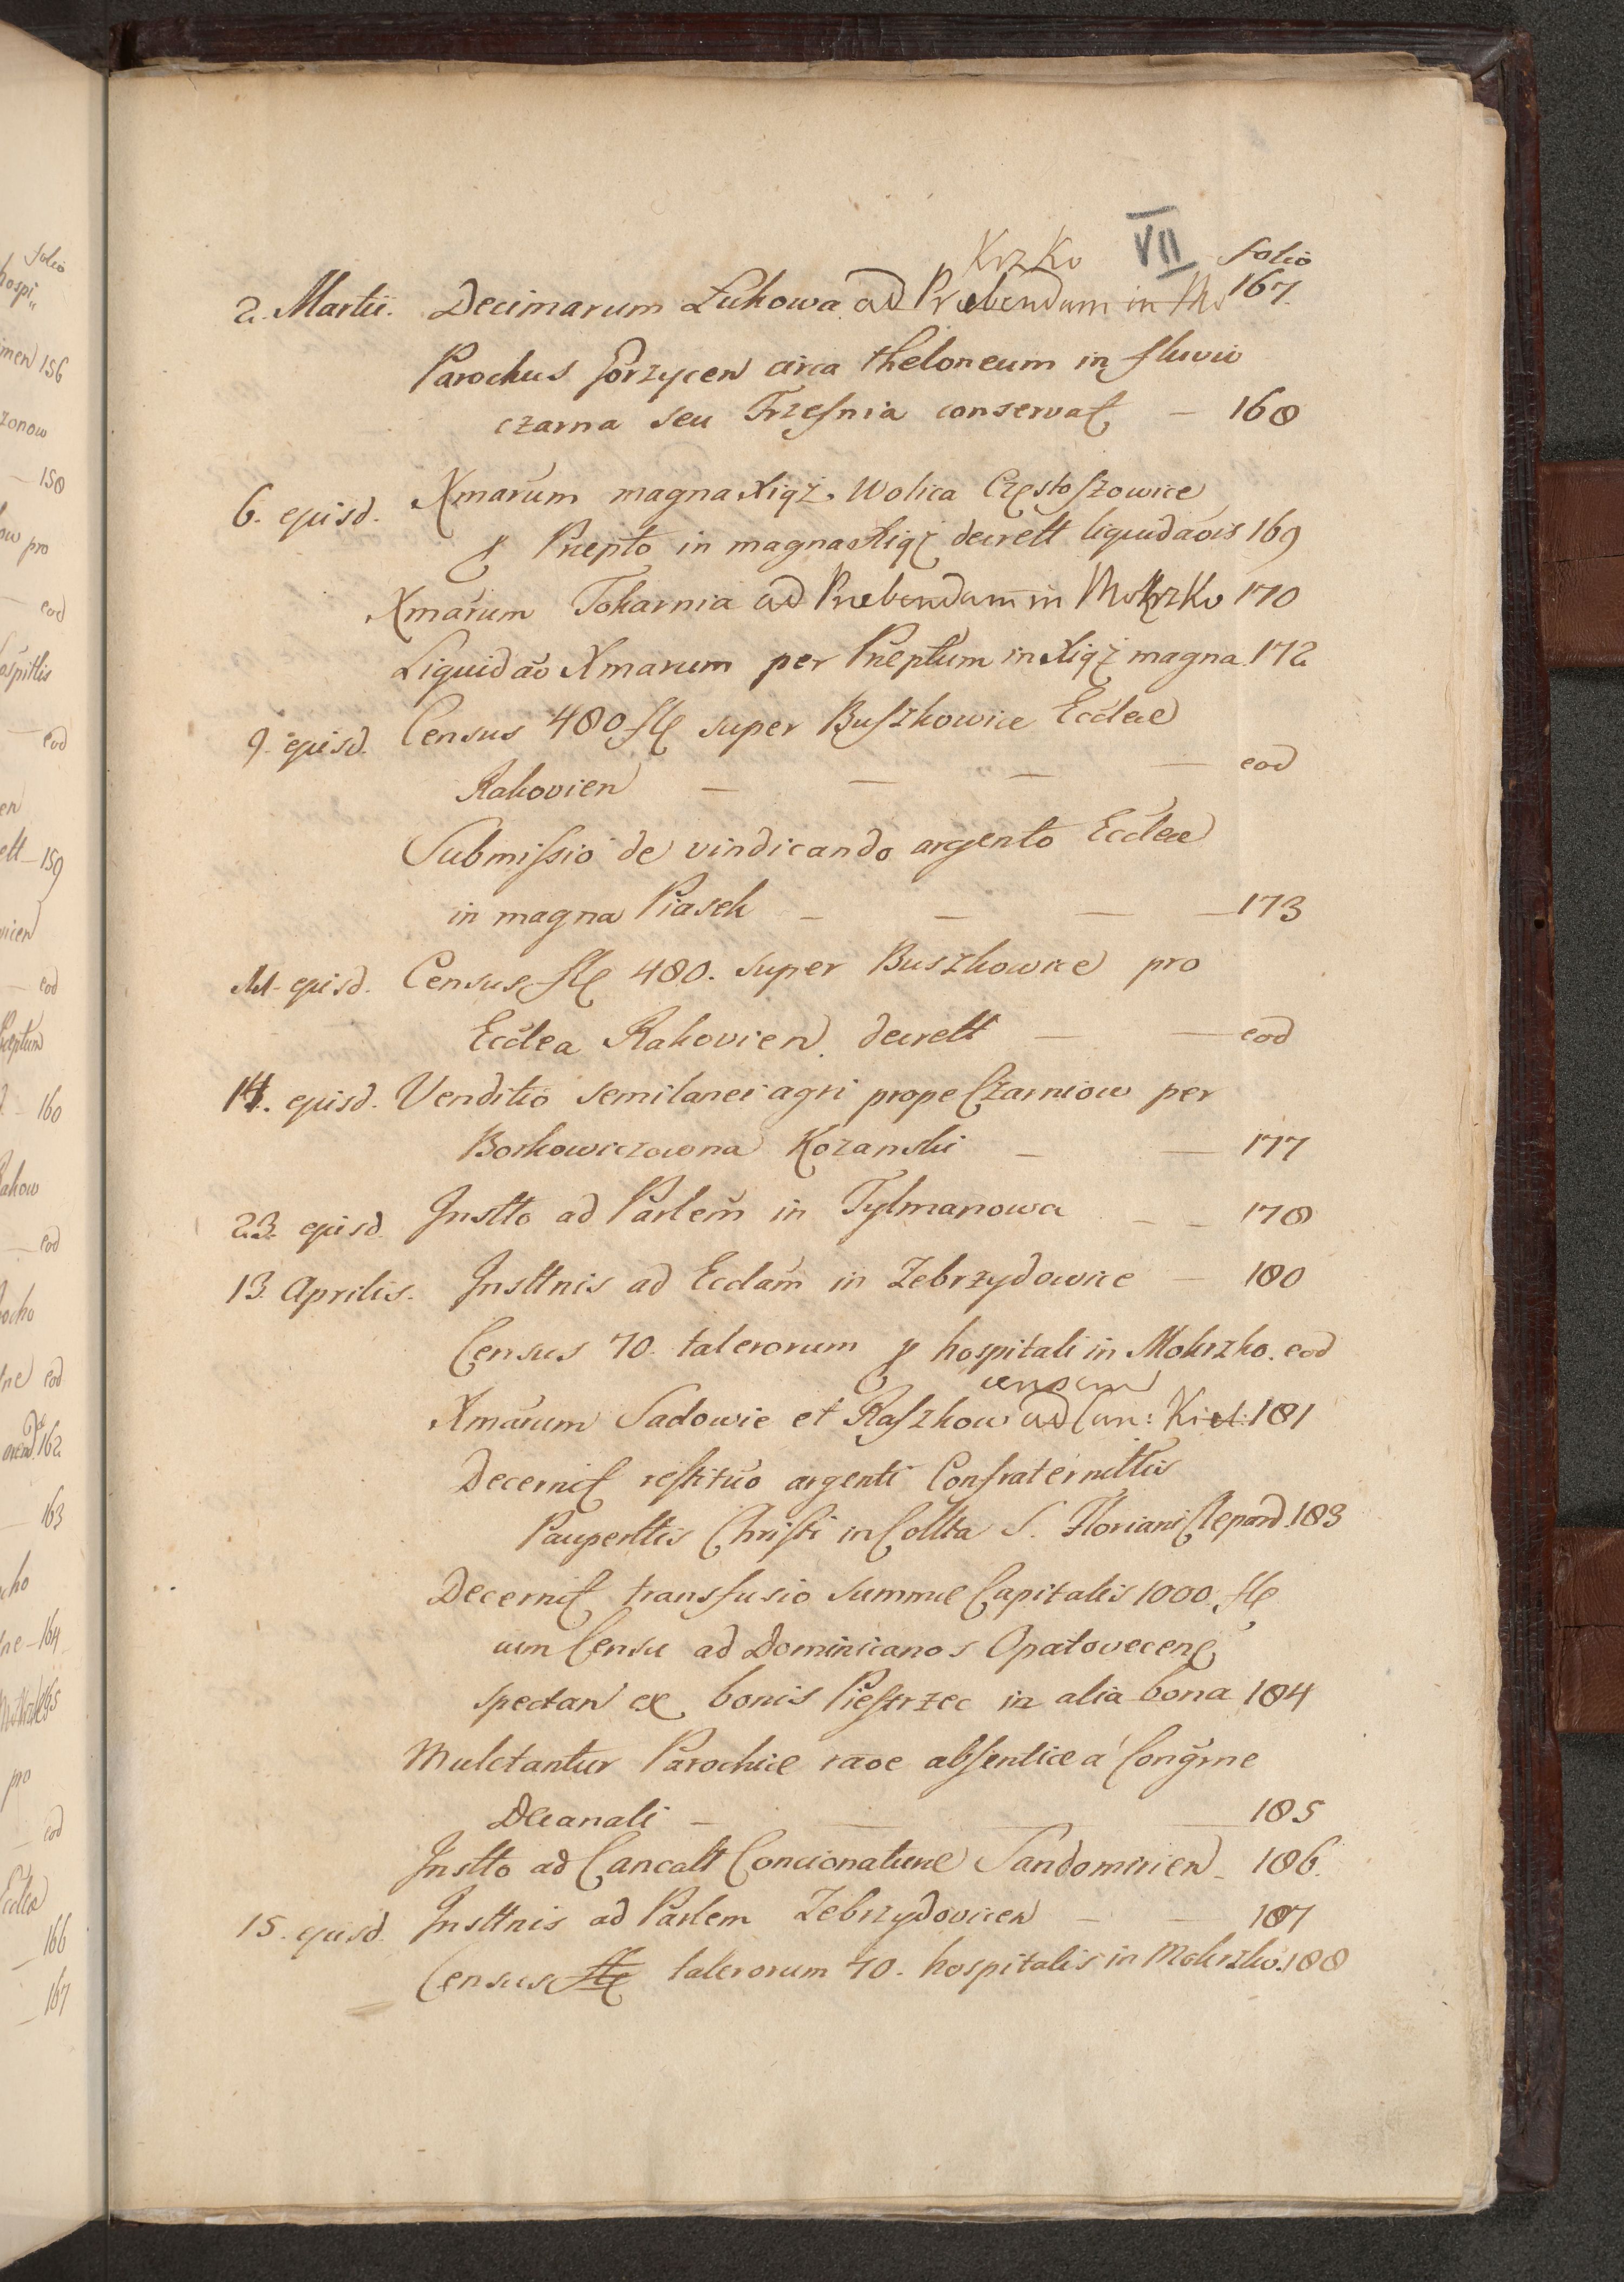 KrzKo VII folio
2. Martii. Decimarum Lukowa ad Praebendam in Mo 167.
Parochus Gorzycen circa theloneum in fluvio
czarna seu Trzesnia conservat — 168
6. ejusd. Xmarum magna Xiąż. Wolica Częstoszowice
p Praepto in magna Xiąż decrett liquidaois 169
Xmarum Tokarnia ad Praebendam in MoKrzKo 170
Liquidao Xmarum per Praeptum in Xiąż magna 172
9. ejusd. Census 480 fl super Buszkowice Ecclae
Rakovien — — — — eod
Submissio de vindicando argento Ecclae
in magna Piasek — — — — 173
11. ejusd. Census fl 480. super Buszkowice pro
Ecclea Rakovien. decrett — — eod
14. ejusd. Venditio semilanei agri prope Czarniow per
Borkowiczowna Kozanski — — 177
23. ejusd. Instto ad Parlem in Tylmanowa — — 178
13. Aprilis. Insttnis ad Ecclam in Zebrzydowice — 180
Census 70. talerorum p hospitali in Mokrzko. eod
censum
Xmarum Sadowie et Raszkow ad Can: Kiel: 181
Decernit restituo argenti Confraternittis
Pauperttis Christi in Collta S. Floriani Clepard. 183
Decernit transfusio summae Capitalis 1000. fl
cum Censu ad Dominicanos Opatovecens
spectan ex bonis Piestrzec in alia bona 184
Mulctantur Parochiae raoe absentiae a Congrne
Decanali — — — — 185
Instto ad Cancalt Concionaturae Sandomirien — 186.
15. ejusd. Insttnis ad Parlem Zebrzydovicen — — 187
Census fl talerorum 70. hospitalis in Mokrzko. 188